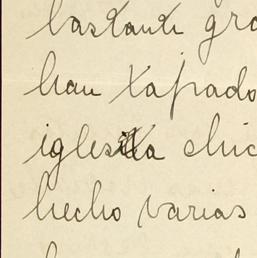 bastante gra
han tapado
iglesia chic
hecho varias